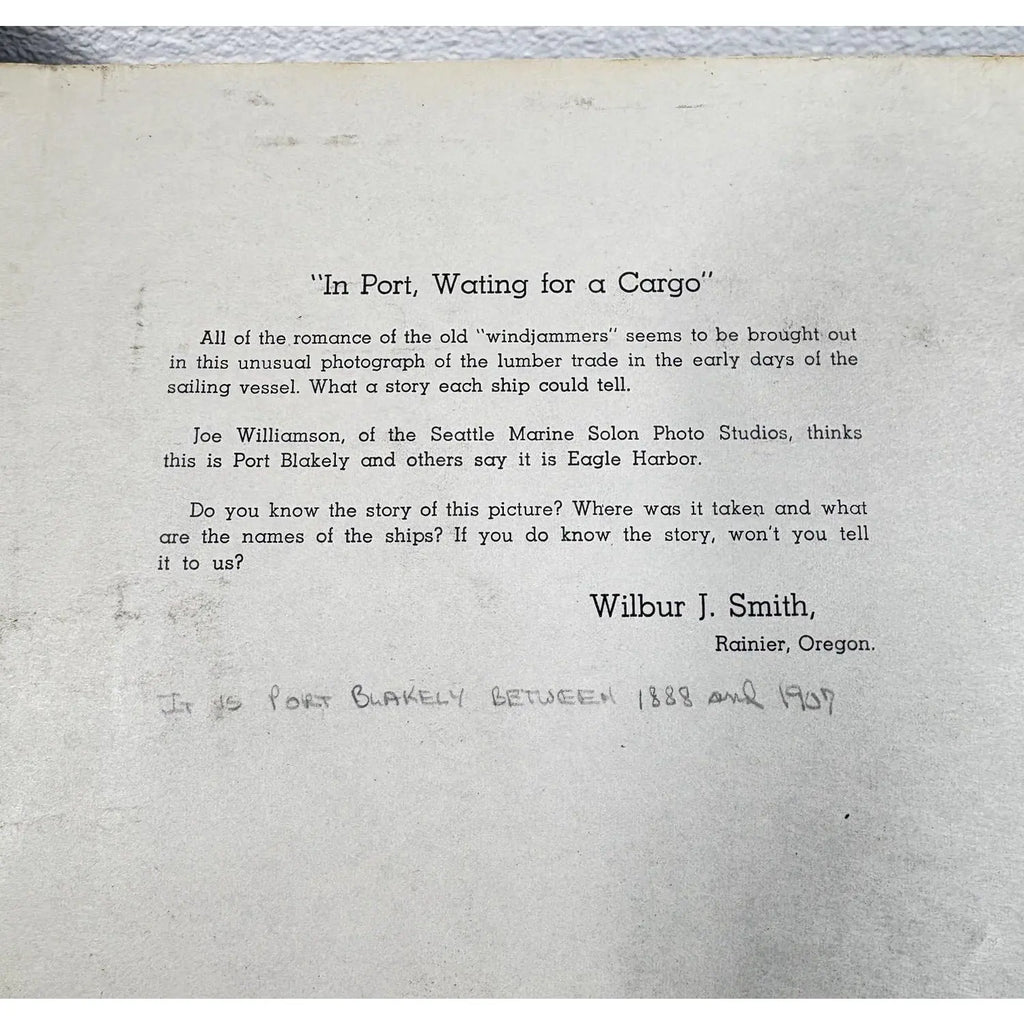 "In Port, Wating for a Cargo"
All of the romance of the old "windjammers" seems to be brought out
in this unusual photograph of the lumber trade in the early days of the
sailing vessel. What a story each ship could tell.
Joe Williamson, of the Seattle Marine Solon Photo Studios, thinks
this is Port Blakely and others say it is Eagle Harbor.
Do you know the story of this picture? Where was it taken and what
are the names of the ships? If you do know the story, won't you tell
it to us?
Wilbur J. Smith,
Rainier, Oregon.
IT IS PORT BLAKELY BETWEEN 1888 and 1907